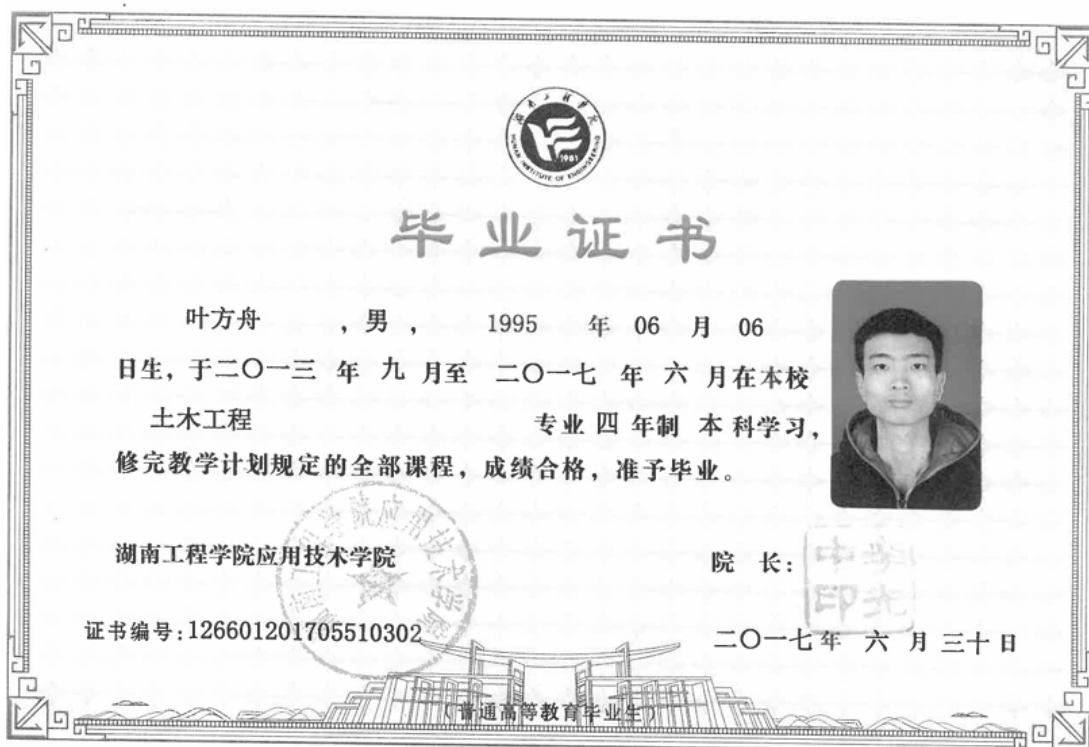 湖南工程学院
HUNAN INSTITUTE OF ENGINEERING
1951
毕业证书
叶方舟 ，男， 1995 年 06 月 06
日生，于二〇一三 年 九 月至 二〇一七 年 六 月在本校
土木工程 专业 四 年制 本 科学习，
修完教学计划规定的全部课程，成绩合格，准予毕业。
湖南工程学院应用技术学院 院 长：
证书编号：126601201705510302 二〇一七 年 六 月 三十 日
（普通高等教育毕业生）